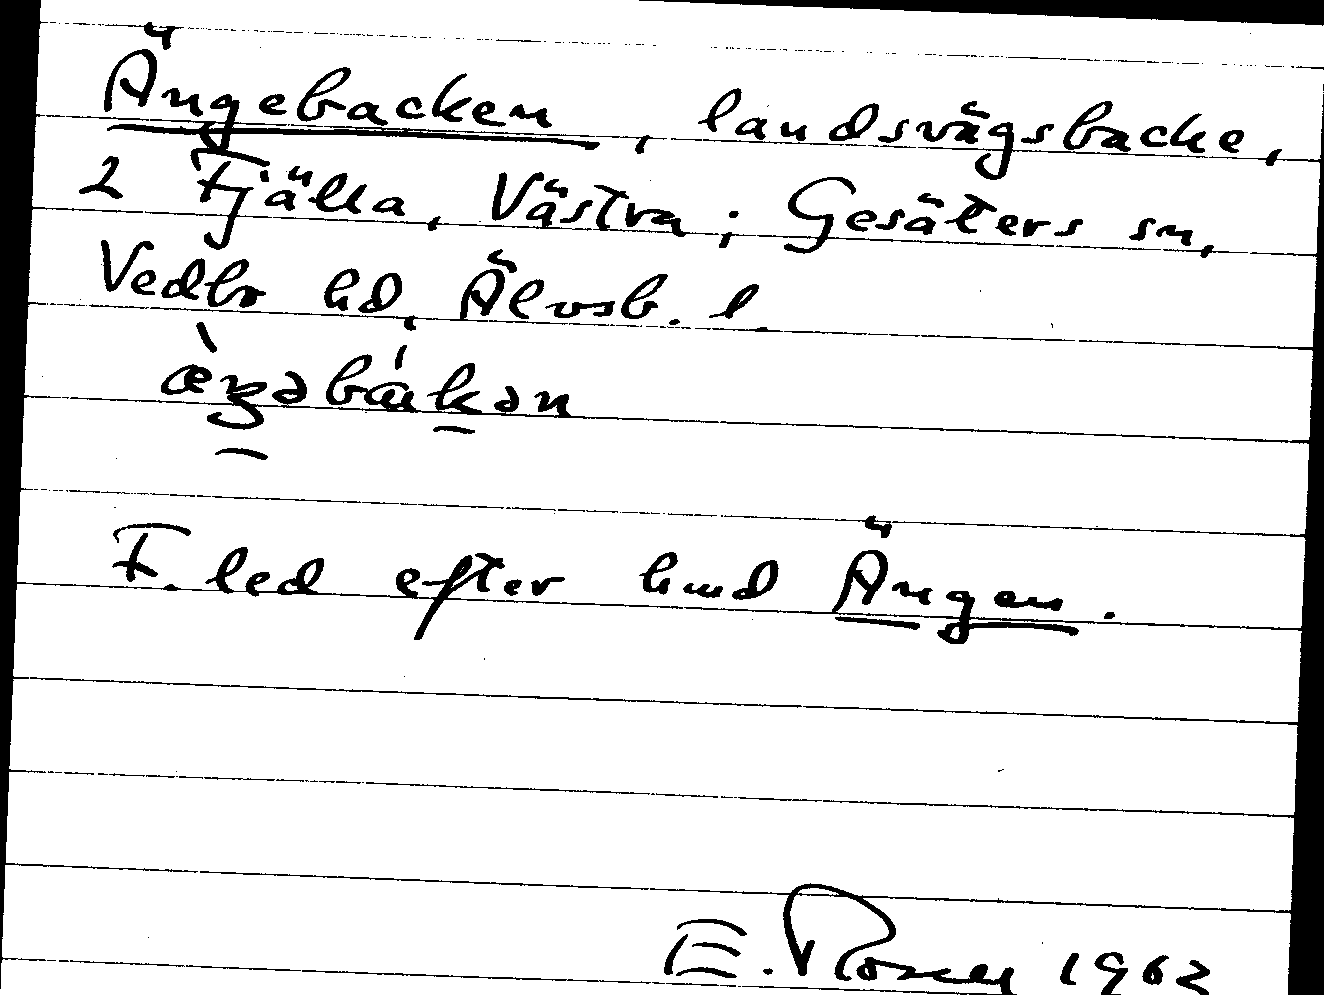 Ängebacken, landsvägsbacke,
2 Fjälla, Västra; Gesäters sn,
Vedbo hd, Älvsb. l.
F. led efter hmd Ängen.
E. Rosell 1962